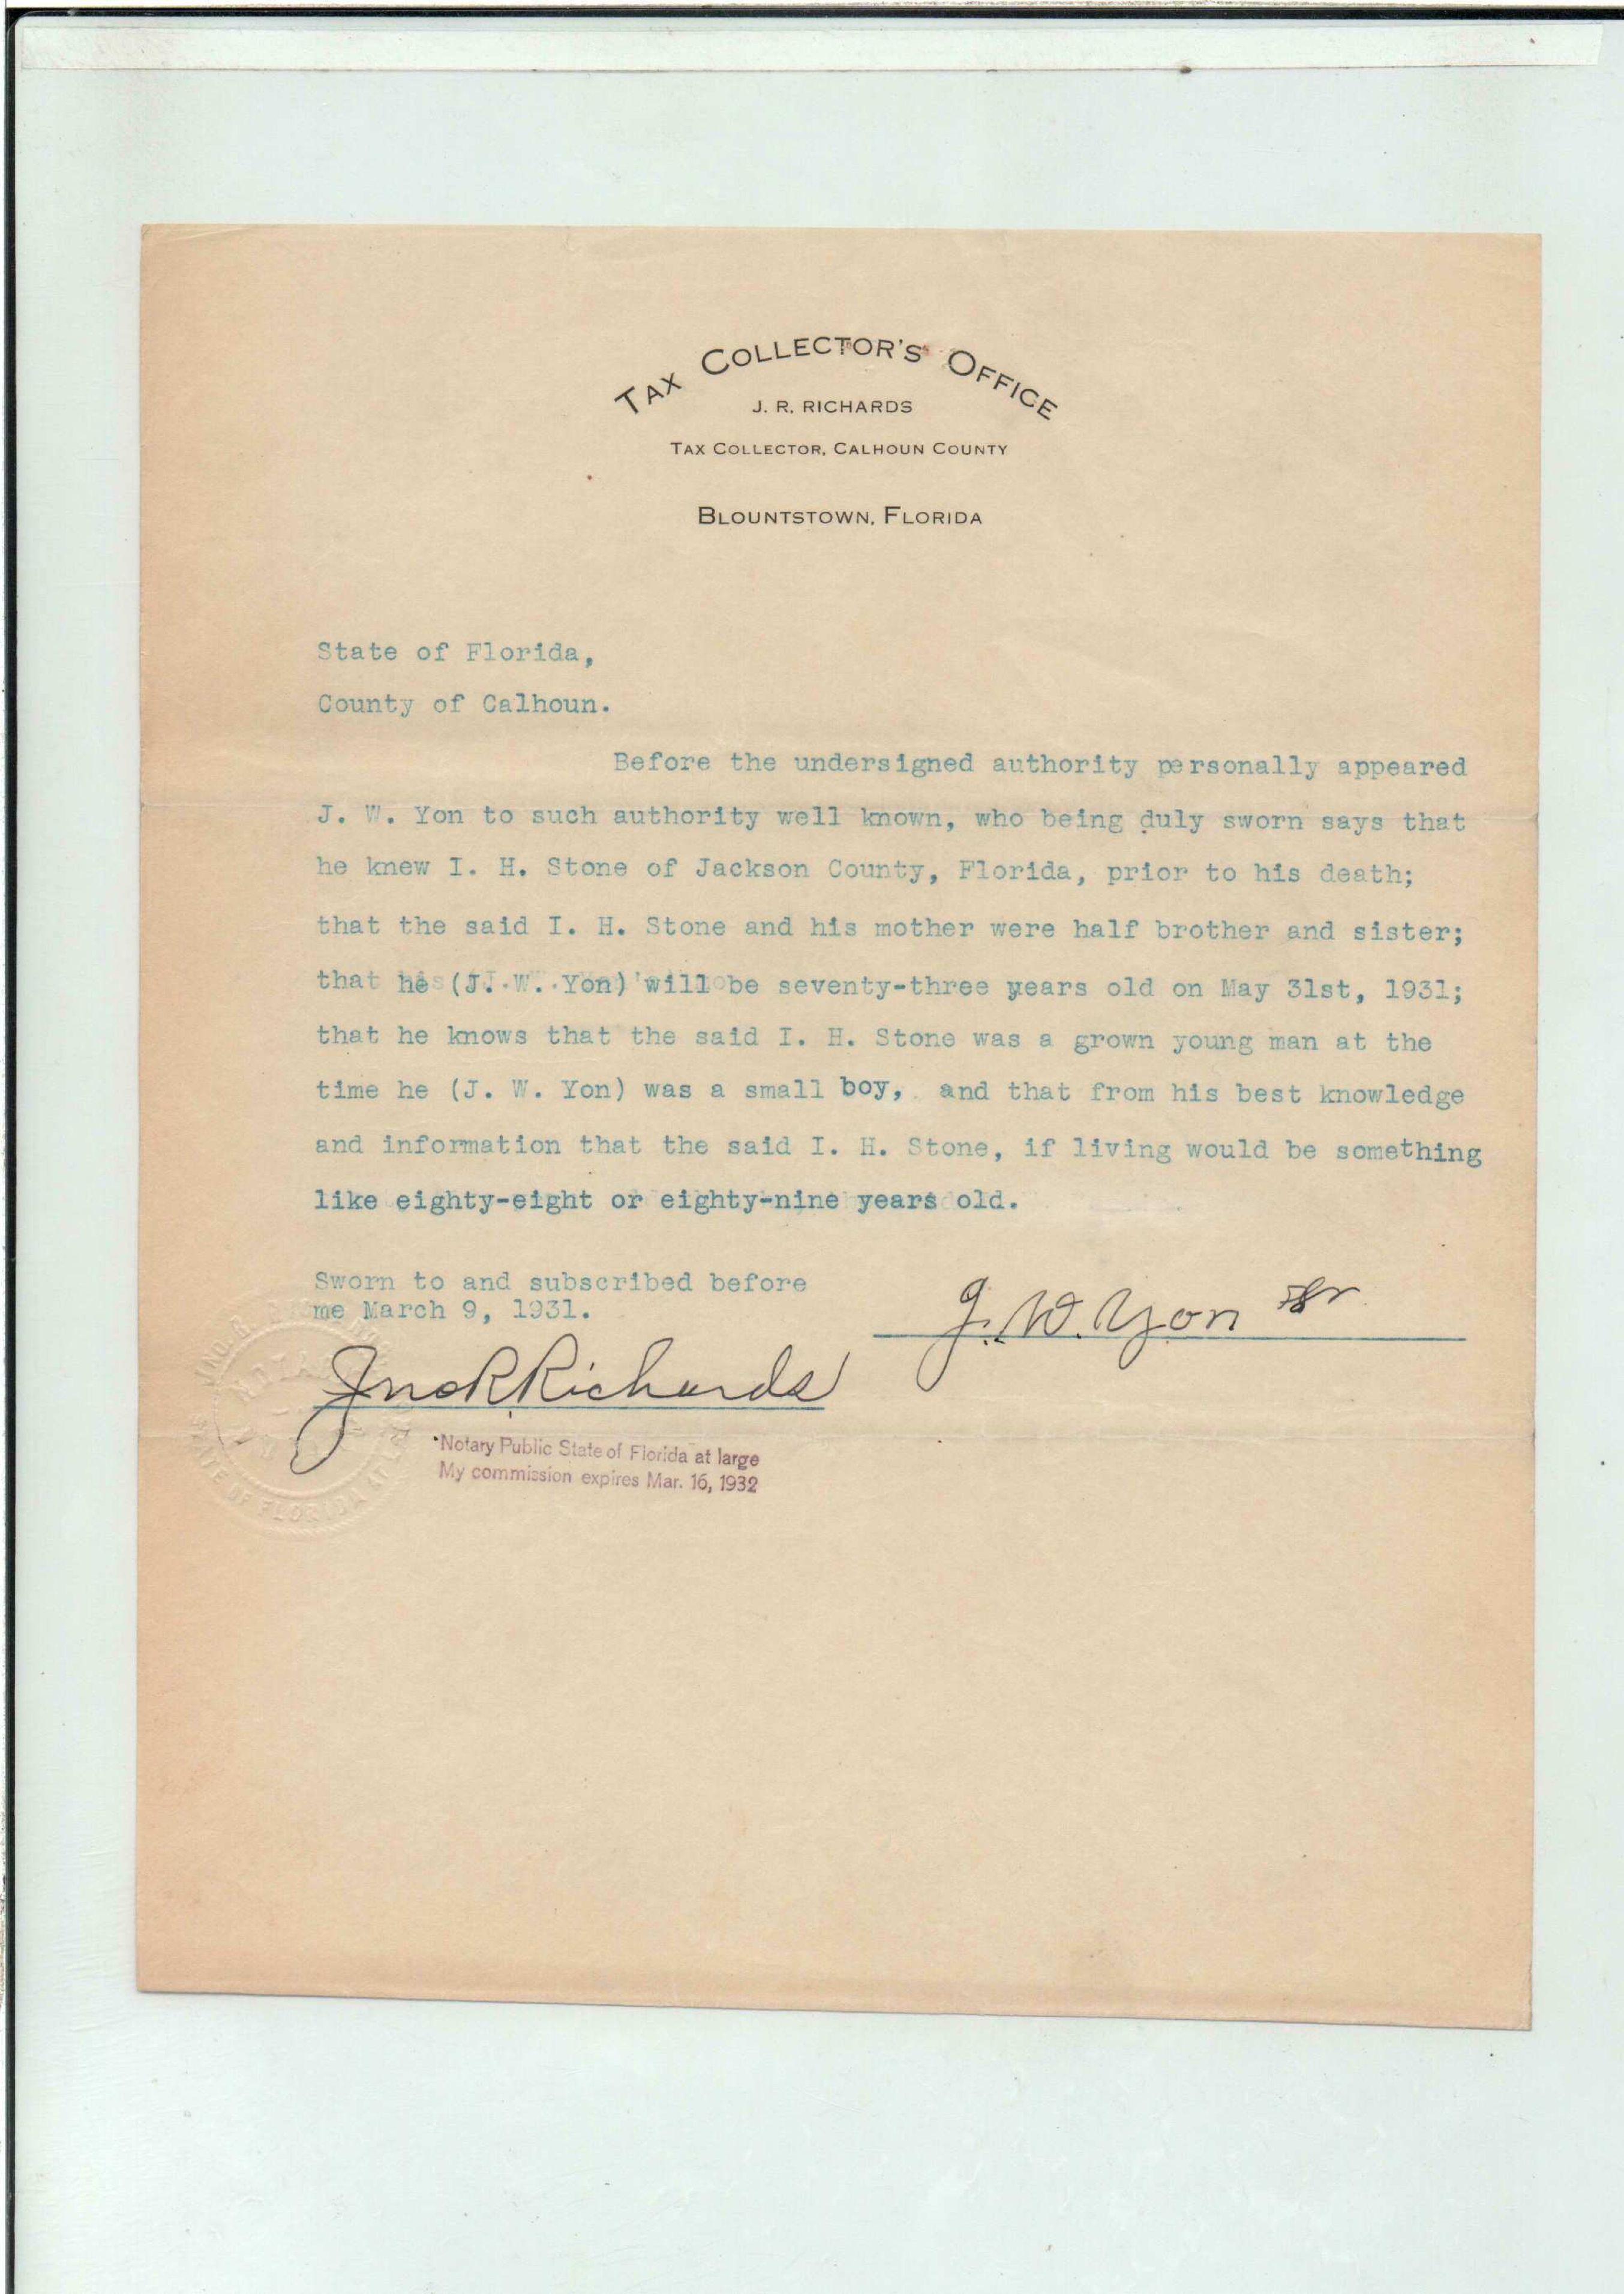 TAX COLLECTOR'S OFFICE
J. R. RICHARDS
TAX COLLECTOR, CALHOUN COUNTY
BLOUNTSTOWN, FLORIDA
State of Florida,
County of Calhoun.
Before the undersigned authority personally appeared
J. W. Yon to such authority well known, who being duly sworn says that
he knew I. H. Stone of Jackson County, Florida, prior to his death;
that the said I. H. Stone and his mother were half brother and sister;
that he (J. W. Yon) will be seventy-three years old on May 31st, 1931;
that he knows that the said I. H. Stone was a grown young man at the
time he (J. W. Yon) was a small boy, and that from his best knowledge
and information that the said I. H. Stone, if living would be something
like eighty-eight or eighty-nine years old.
Sworn to and subscribed before
me March 9, 1931.
J. W. Yon Sr
Jno R Richards
Notary Public State of Florida at large
My commission expires Mar. 16, 1932
JNO. R.
NOTARY
STATE OF FLORIDA AT